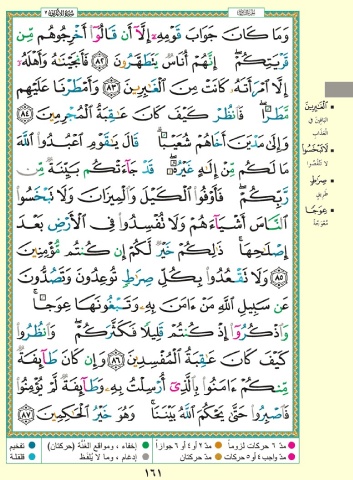 وَمَا كَانَ جَوَابَ قَوْمِهِۦٓ إِلَّآ أَن قَالُوٓا۟ أَخْرِجُوهُم مِّن
قَرْيَتِكُمْ ۖ إِنَّهُمْ أُنَاسٌ يَتَطَهَّرُونَ ٨٢ فَأَنجَيْنَٰهُ وَأَهْلَهُۥٓ
إِلَّا ٱمْرَأَتَهُۥ كَانَتْ مِنَ ٱلْغَٰبِرِينَ ٨٣ وَأَمْطَرْنَا عَلَيْهِم
مَّطَرًا ۖ فَٱنظُرْ كَيْفَ كَانَ عَٰقِبَةُ ٱلْمُجْرِمِينَ ٨٤
وَإِلَىٰ مَدْيَنَ أَخَاهُمْ شُعَيْبًا ۗ قَالَ يَٰقَوْمِ ٱعْبُدُوا۟ ٱللَّهَ
مَا لَكُم مِّنْ إِلَٰهٍ غَيْرُهُۥ ۖ قَدْ جَآءَتْكُم بَيِّنَةٌ مِّن
رَّبِّكُمْ ۖ فَأَوْفُوا۟ ٱلْكَيْلَ وَٱلْمِيزَانَ وَلَا تَبْخَسُوا۟
ٱلنَّاسَ أَشْيَآءَهُمْ وَلَا تُفْسِدُوا۟ فِى ٱلْأَرْضِ بَعْدَ
إِصْلَٰحِهَا ۚ ذَٰلِكُمْ خَيْرٌ لَّكُمْ إِن كُنتُم مُّؤْمِنِينَ
٨٥ وَلَا تَقْعُدُوا۟ بِكُلِّ صِرَٰطٍ تُوعِدُونَ وَتَصُدُّونَ
عَن سَبِيلِ ٱللَّهِ مَنْ ءَامَنَ بِهِۦ وَتَبْغُونَهَا عِوَجًا ۚ
وَٱذْكُرُوٓا۟ إِذْ كُنتُمْ قَلِيلًا فَكَثَّرَكُمْ ۖ وَٱنظُرُوا۟
كَيْفَ كَانَ عَٰقِبَةُ ٱلْمُفْسِدِينَ ٨٦ وَإِن كَانَ طَآئِفَةٌ
مِّنكُمْ ءَامَنُوا۟ بِٱلَّذِىٓ أُرْسِلْتُ بِهِۦ وَطَآئِفَةٌ لَّمْ يُؤْمِنُوا۟
فَٱصْبِرُوا۟ حَتَّىٰ يَحْكُمَ ٱللَّهُ بَيْنَنَا ۚ وَهُوَ خَيْرُ ٱلْحَٰكِمِينَ ٨٧
ٱلْغَٰبِرِينَ
الباقين في
العذاب
لَا تَبْخَسُوا۟
لا تنقصوا
صِرَٰطٍ
طريق
عِوَجًا
معوجة
مدّ ٦ حركات لزوماً مدّ ٢ أو ٤ أو ٦ جوازاً إخفاء، ومواقع الغنّة (حركتان) تفخيم
مدّ واجب ٤ أو ٥ حركات مدّ حركتان إدغام، وما لا يُلفَظ قلقلة
١٦١